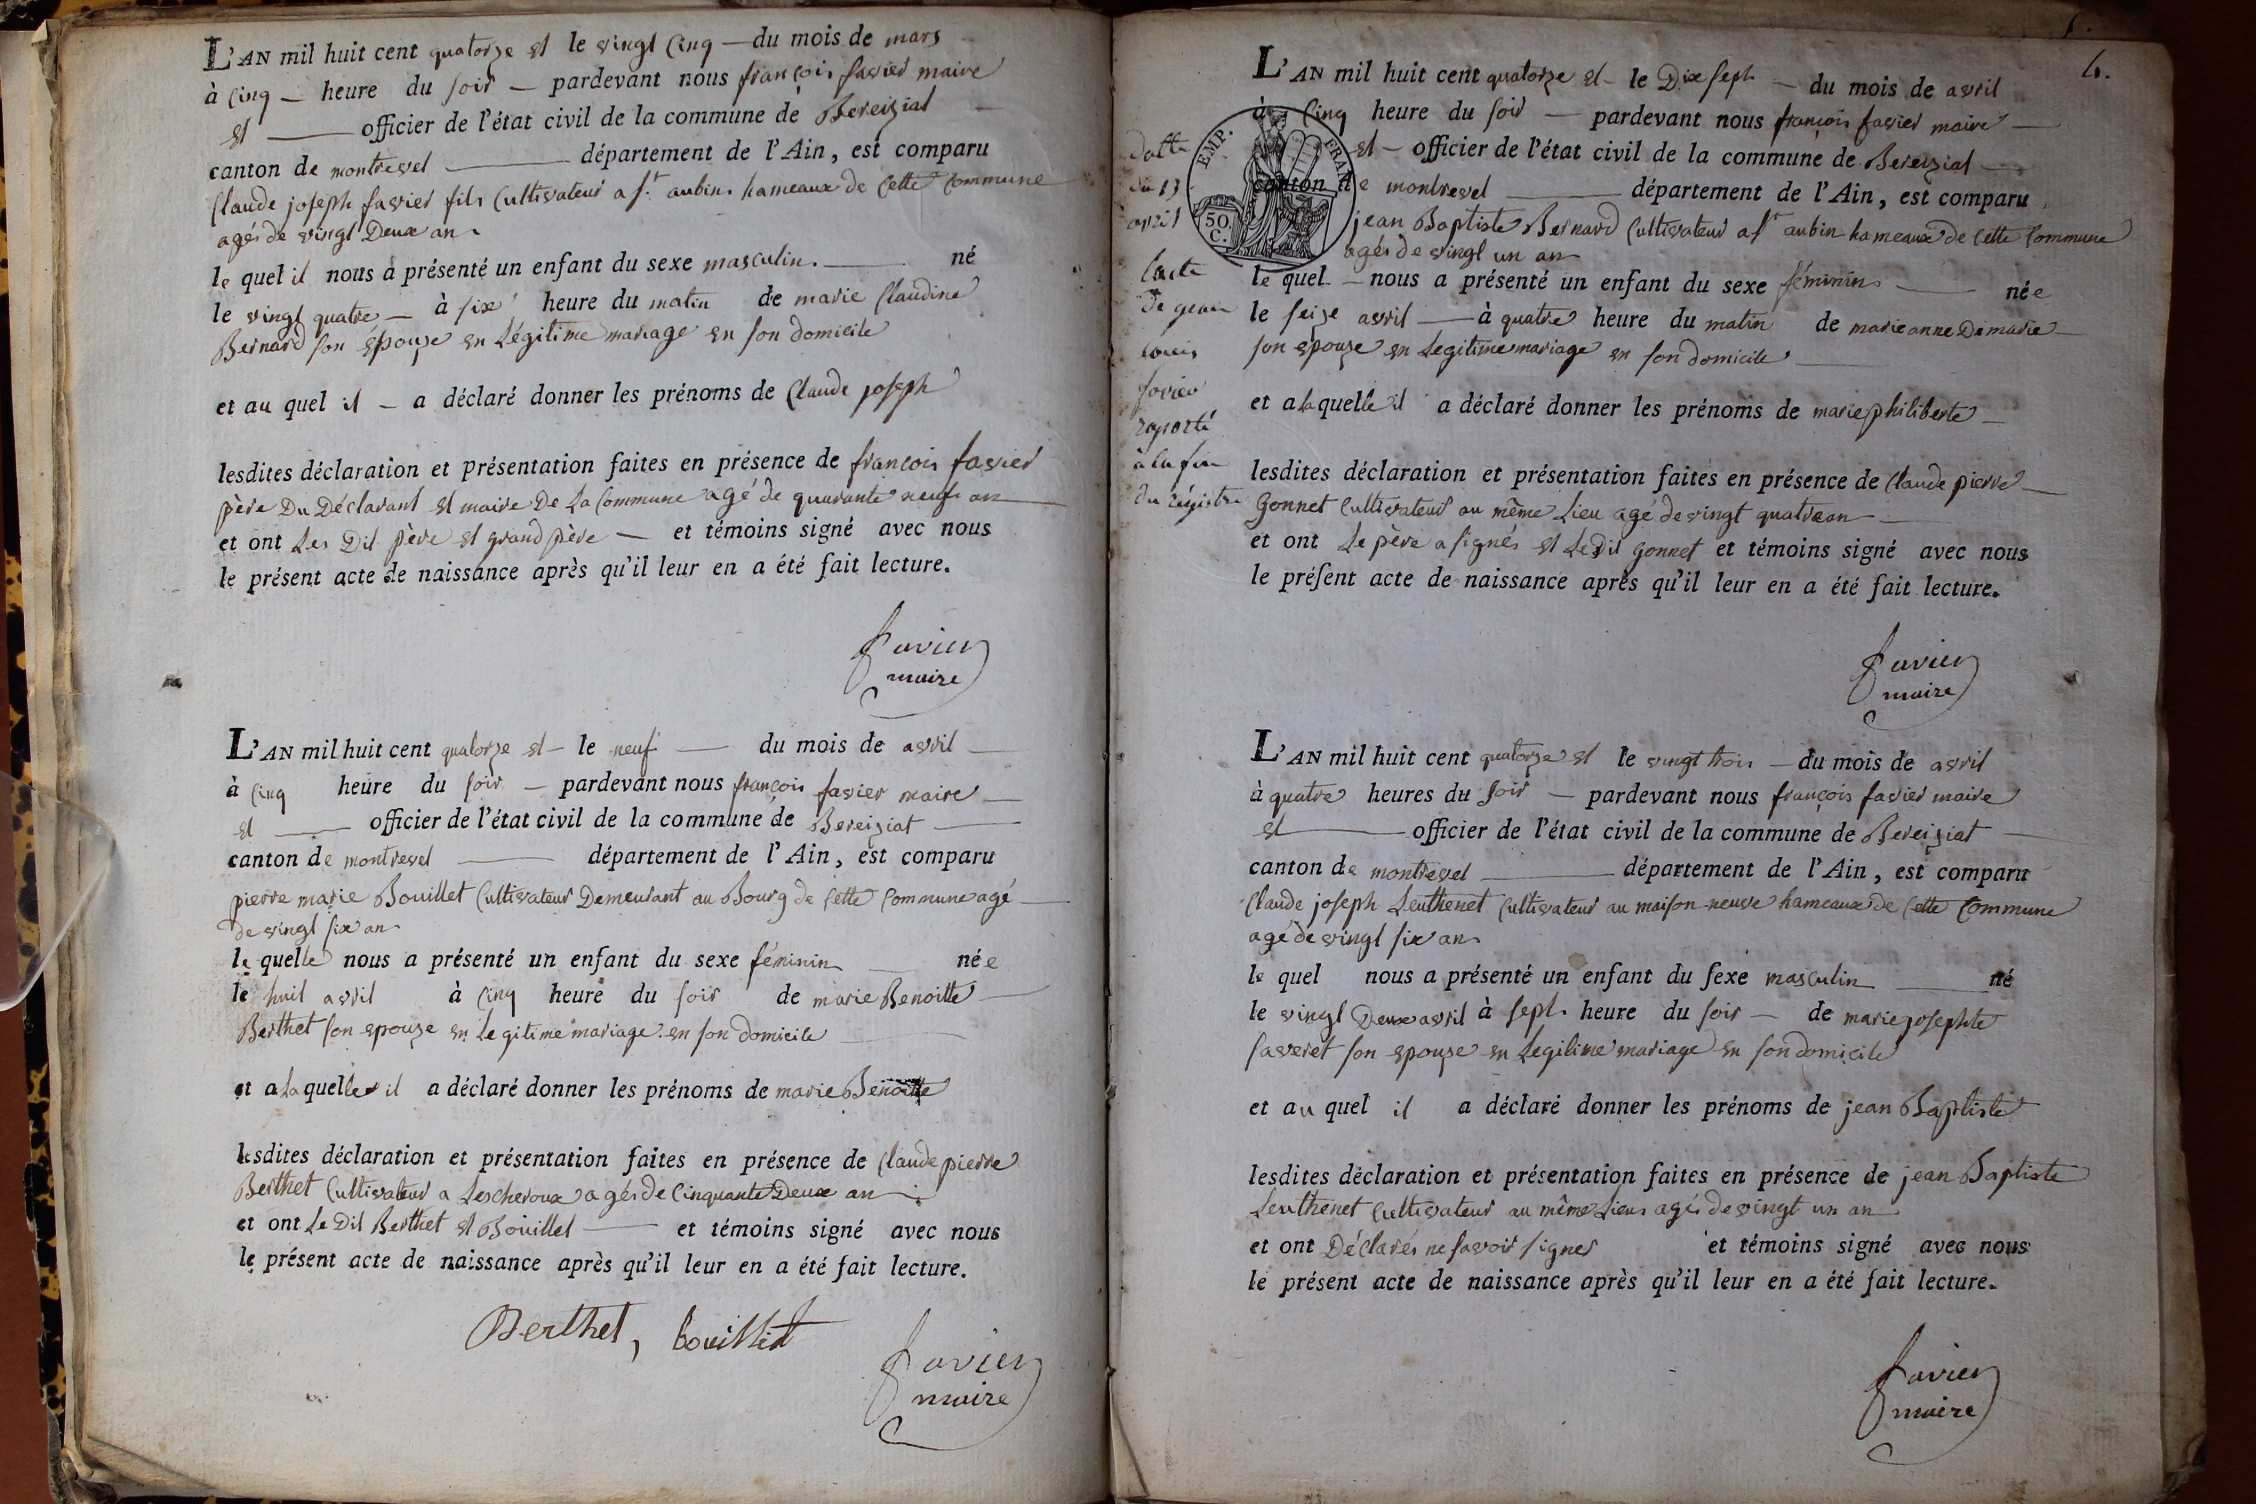 L'AN mil huit cent quatorze et le vingt cinq — du mois de mars
à cinq — heure du soir — pardevant nous françois favier maire
et — officier de l'état civil de la commune de Bereiziat —
canton de montrevel — département de l'Ain, est comparu
Claude joseph favier fils Cultivateur a st aubin hameaux de Cette Commune
agés de vingt Deux an
le quel il nous a présenté un enfant du sexe masculin. — né
le vingt quatre — à six heure du matin de marie Claudine
Bernard son épouze en Légitime mariage en son domicile
et au quel il — a déclaré donner les prénoms de Claude joseph
lesdites déclaration et présentation faites en présence de françois favier
père Du Déclarant et maire De La Commune agé de quarante neuf an
et ont Les Dit père et grand père — et témoins signé avec nous
le présent acte de naissance après qu'il leur en a été fait lecture.
favier
maire
L'AN mil huit cent quatorze et — le neuf — du mois de avril —
à cinq heure du soir — pardevant nous françois favier maire —
et — officier de l'état civil de la commune de Bereiziat —
canton de montrevel — département de l'Ain, est comparu
pierre marie Bouillet Cultivateur Demeurant au Bourg de Cette Commune agé —
de vingt six an
le quelle nous a présenté un enfant du sexe féminin — née
le huit avril à cinq heure du soir de marie Benoitte —
Berthet son epouze en Legitime mariage en son domicile —
et a La quelle il a déclaré donner les prénoms de marie Benoitte
lesdites déclaration et présentation faites en présence de Claude pierre
Berthet Cultivateur a Lescheroux agés de Cinquante Deux an
et ont Le Dit Berthet et Bouillet — et témoins signé avec nous
le présent acte de naissance après qu'il leur en a été fait lecture.
Berthet, bouillet
favier
maire
4.
L'AN mil huit cent quatorze et — le Dix sept — du mois de avril
à Cinq heure du soir — pardevant nous françois favier maire —
et — officier de l'état civil de la commune de Bereiziat —
canton de montrevel — département de l'Ain, est comparu
jean Baptiste Bernard Cultivateur a st aubin hameaux de Cette Commune
agés de vingt un an
le quel — nous a présenté un enfant du sexe féminin — née
le seize avril — à quatre heure du matin de marie anne Demarie —
son epouze en Legitime mariage en son domicile —
et a La quelle il a déclaré donner les prénoms de marie philiberte —
lesdites déclaration et présentation faites en présence de Claude pierre —
Gonnet Cultivateur au même Lieu agé de vingt quatre an —
et ont Le père a signés et Le Dit gonnet et témoins signé avec nous
le présent acte de naissance après qu'il leur en a été fait lecture.
favier
maire
EMP. FRAN.
50.
C.
datte
du 13
april
l'acte
de jean
louis
favier
raporté
a la fin
du régistre
L'AN mil huit cent quatorze et le vingt trois — du mois de avril
à quatre heures du soir — pardevant nous françois favier maire
et — officier de l'état civil de la commune de Bereiziat —
canton de montrevel — département de l'Ain, est comparu
Claude joseph Leuthenet Cultivateur au maison neuve hameaux de Cette Commune
agé de vingt six an
le quel nous a présenté un enfant du sexe masculin — né
le vingt Deux avril à sept heure du soir — de marie josephte
faveret son epouze en Legitime mariage en son domicile
et au quel il a déclaré donner les prénoms de jean Baptiste
lesdites déclaration et présentation faites en présence de jean Baptiste
Leuthenet Cultivateur au même Lieux agés de vingt un an
et ont Déclarés ne savoir signer et témoins signé avec nous
le présent acte de naissance après qu'il leur en a été fait lecture.
favier
maire